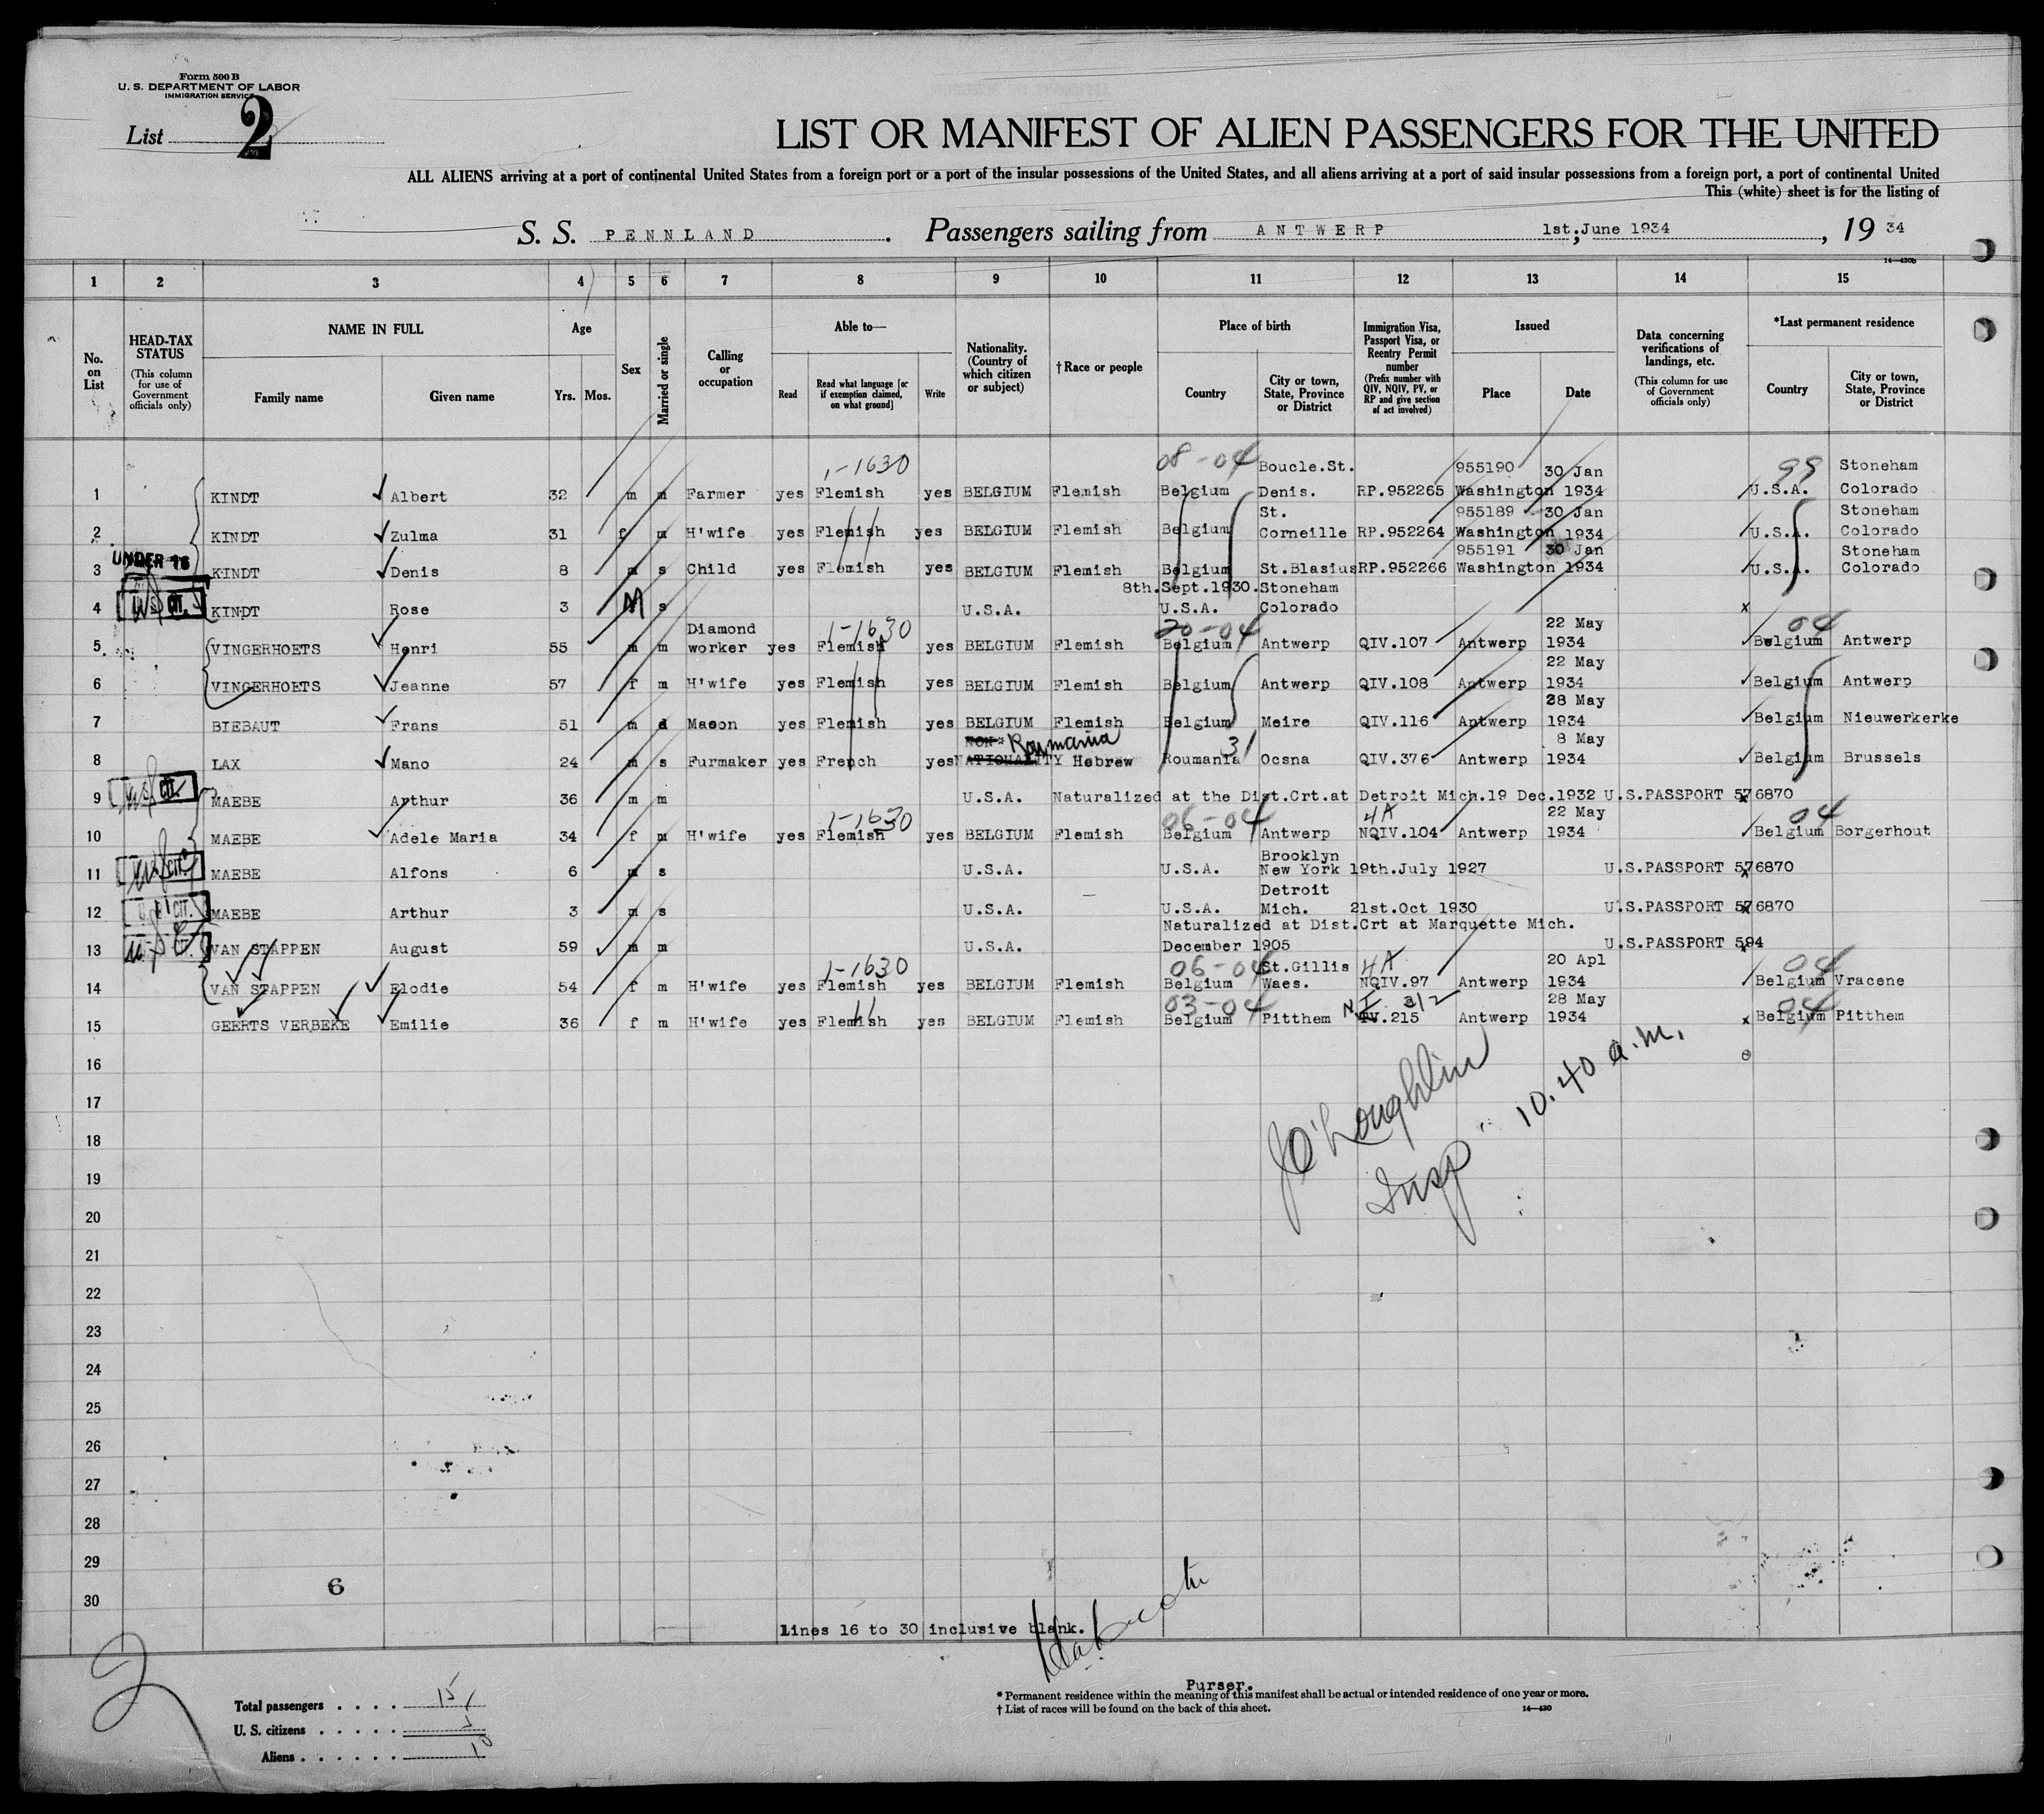 Form 500 B
U. S. DEPARTMENT OF LABOR
IMMIGRATION SERVICE
List 2
LIST OR MANIFEST OF ALIEN PASSENGERS FOR THE UNITED
ALL ALIENS arriving at a port of continental United States from a foreign port or a port of the insular possessions of the United States, and all aliens arriving at a port of said insular possessions from a foreign port, a port of continental United
This (white) sheet is for the listing of
S. S. PENNLAND. Passengers sailing from ANTWERP 1st,June 1934, 19 34
14—430b
1 2 3 4 5 6 7 8 9 10 11 12 13 14 15
No. on List
HEAD-TAX STATUS (This column for use of Government officials only)
NAME IN FULL
Family name Given name
Age
Yrs. Mos.
Sex
Married or single
Calling or occupation
Able to—
Read Read what language [or if exemption claimed, on what ground] Write
Nationality. (Country of which citizen or subject)
†Race or people
Place of birth
Country City or town, State, Province or District
Immigration Visa, Passport Visa, or Reentry Permit number (Prefix number with QIV, NQIV, PV, or RP and give section of act involved)
Issued
Place Date
Data concerning verifications of landings, etc. (This column for use of Government officials only)
*Last permanent residence
Country City or town, State, Province or District
1-1630 08-04 Boucle.St. 955190 30 Jan 99 Stoneham
1 KINDT Albert 32 m m Farmer yes Flemish yes BELGIUM Flemish Belgium Denis. RP.952265 Washington 1934 U.S.A. Colorado
St. 955189 30 Jan Stoneham
2 KINDT Zulma 31 f m H'wife yes Flemish yes BELGIUM Flemish Belgium Corneille RP.952264 Washington 1934 U.S.A. Colorado
UNDER 16 955191 30 Jan Stoneham
3 KINDT Denis 8 m s Child yes Flemish yes BELGIUM Flemish Belgium St.Blasius RP.952266 Washington 1934 U.S.A. Colorado
8th.Sept.1930. Stoneham
4 U.S. CIT. KINDT Rose 3 M s U.S.A. U.S.A. Colorado x
Diamond 1-1630 20-04 22 May 04
5. VINGERHOETS Henri 55 m m worker yes Flemish yes BELGIUM Flemish Belgium Antwerp QIV.107 Antwerp 1934 Belgium Antwerp
22 May
6 VINGERHOETS Jeanne 57 f m H'wife yes Flemish yes BELGIUM Flemish Belgium Antwerp QIV.108 Antwerp 1934 Belgium Antwerp
28 May
7 BIEBAUT Frans 51 m d Mason yes Flemish yes BELGIUM Flemish Belgium Meire QIV.116 Antwerp 1934 Belgium Nieuwerkerke
NON* Roumania 31 8 May
8 LAX Mano 24 m s Furmaker yes French yes NATIONALITY Hebrew Roumania Ocsna QIV.376 Antwerp 1934 Belgium Brussels
9 U.S. CIT. MAEBE Arthur 36 m m U.S.A. Naturalized at the Dist.Crt.at Detroit Mich.19 Dec.1932 U.S.PASSPORT 576870
1-1630 06-04 4A 22 May 04
10 MAEBE Adele Maria 34 f m H'wife yes Flemish yes BELGIUM Flemish Belgium Antwerp NQIV.104 Antwerp 1934 Belgium Borgerhout
Brooklyn
11 U.S. CIT. MAEBE Alfons 6 m s U.S.A. U.S.A. New York 19th.July 1927 U.S.PASSPORT 576870
Detroit
12 U.S. CIT. MAEBE Arthur 3 m s U.S.A. U.S.A. Mich. 21st.Oct 1930 U.S.PASSPORT 576870
Naturalized at Dist.Crt at Marquette Mich.
13 VAN STAPPEN August 59 m m U.S.A. December 1905 U.S.PASSPORT 594
1-1630 06-04 St.Gillis 4A 20 Apl 04
14 VAN STAPPEN Elodie 54 f m H'wife yes Flemish yes BELGIUM Flemish Belgium Waes. NQIV.97 Antwerp 1934 Belgium Vracene
03-04 3/2 28 May 04
15 GEERTS VERBEKE Emilie 36 f m H'wife yes Flemish yes BELGIUM Flemish Belgium Pitthem PV.215 Antwerp 1934 x Belgium Pitthem
16
17
18
19
20
21
22
23
24
25
26
27
28
29
30
J O'Loughlin
Insp
10.40 a.m.
6
Lines 16 to 30 inclusive blank.
Purser.
2
Total passengers 15
U. S. citizens 5
Aliens 10
* Permanent residence within the meaning of this manifest shall be actual or intended residence of one year or more.
† List of races will be found on the back of this sheet.
14—430